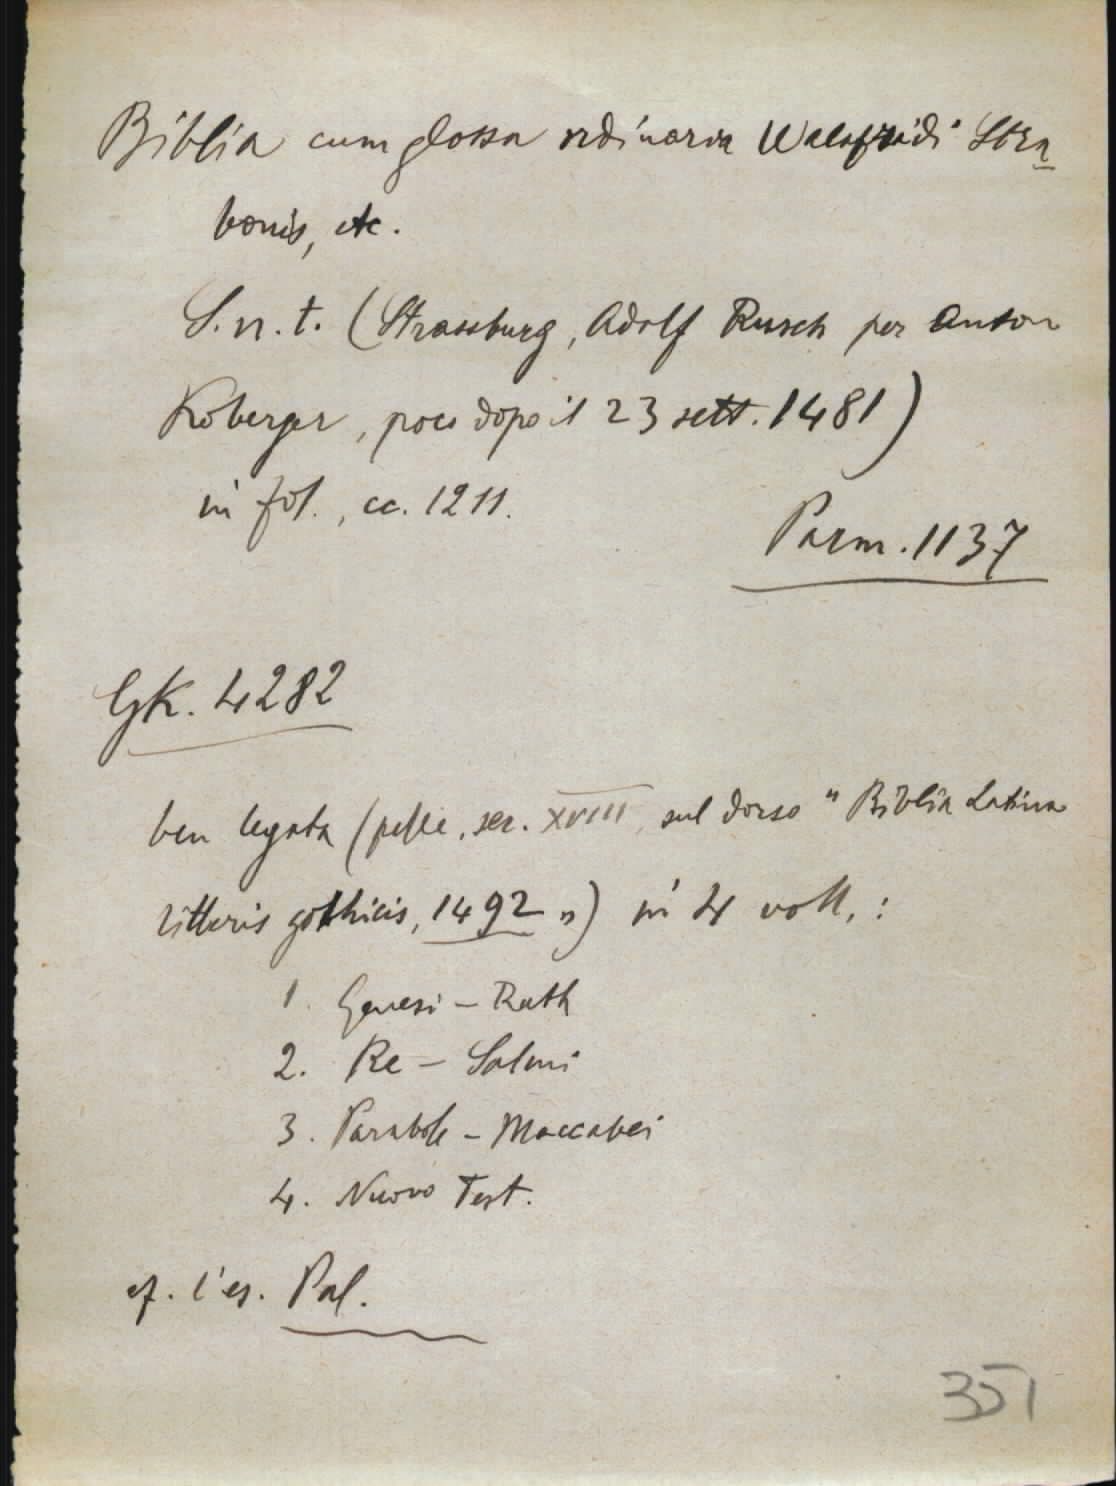 Biblia cum glossa ordinaria Walafridi Stra
bonis, etc.
S. n. t. (Strassburg, Adolf Rusch per Anton
Koberger, poco dopo il 23 sett. 1481)
in fol., cc. 1211.
Parm. 1137
GK. 4282
ben legata (pelle, sec. XVIII, sul dorso " Biblia Latina
litteris gothicis, 1492 „) in 4 voll. :
1. Genesi - Ruth
2. Re - Salmi
3. Parabole - Maccabei
4. Nuovo Test.
cf. l'es. Pal.
351